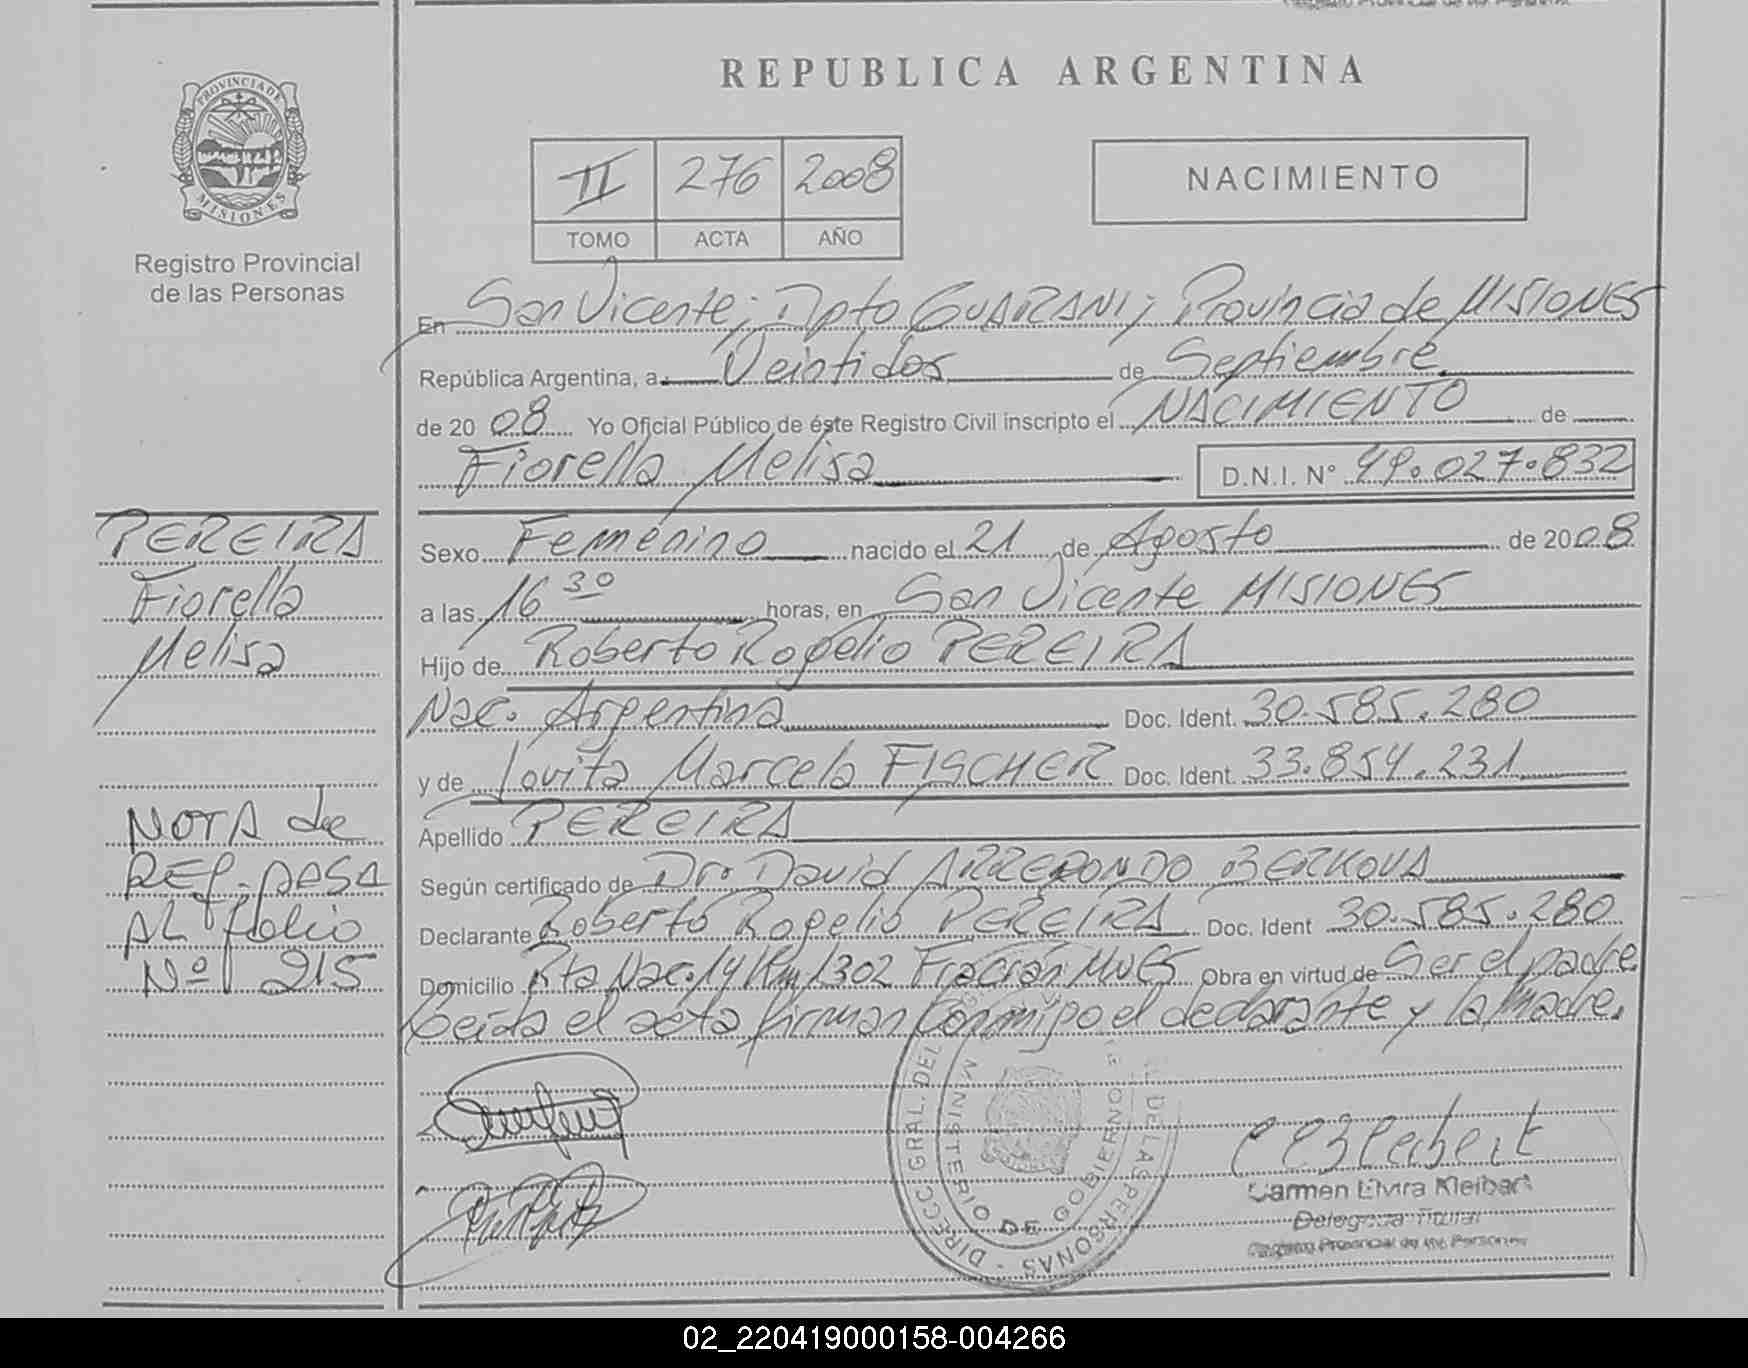 REPUBLICA ARGENTINA
PROVINCIA DE
MISIONES
Registro Provincial
de las Personas
II 276 2008
TOMO ACTA AÑO
NACIMIENTO
En San Vicente; Dpto GUARANI; Provincia de MISIONES
República Argentina, a Veintidos de Septiembre
de 2008 Yo Oficial Público de éste Registro Civil inscripto el NACIMIENTO de
Fiorella Melisa D.N.I. N° 49.027.832
PEREIRA
Fiorella
Melisa
Sexo Femenino nacido el 21 de Agosto de 2008
a las 16 30 horas, en San Vicente MISIONES
Hijo de Roberto Rogelio PEREIRA
Nac. Argentina Doc. Ident. 30.585.280
y de Jovita Marcela FISCHER Doc. Ident. 33.854.231
Apellido PEREIRA
Según certificado de Dr. David ARREDONDO
Declarante Roberto Rogelio PEREIRA Doc. Ident 30.585.280
Domicilio Rta Nac. 14 Km 1302 Fracrán Mnes Obra en virtud de Ser el padre
Leída el acta firman conmigo el declarante y la madre.
NOTA de
REF. PASA
AL folio
Nº 215
DIRECC. GRAL. DEL
DE LAS PERSONAS
MINISTERIO DE GOBIERNO
Carmen Elvira Kleibert
Delegada Titular
Registro Provincial de las Personas
02_220419000158-004266